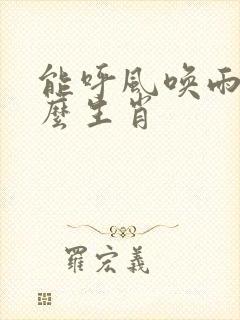 能呼风唤雨
麼生肖
羅宏義